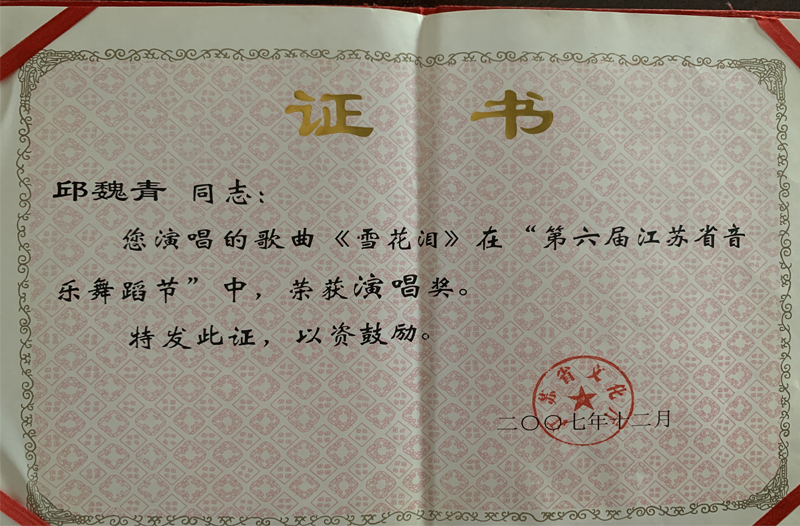 证书
邱魏青 同志：
您演唱的歌曲《雪花泪》在“第六届江苏省音
乐舞蹈节”中，荣获演唱奖。
特发此证，以资鼓励。
苏省文化
二〇〇七年十二月